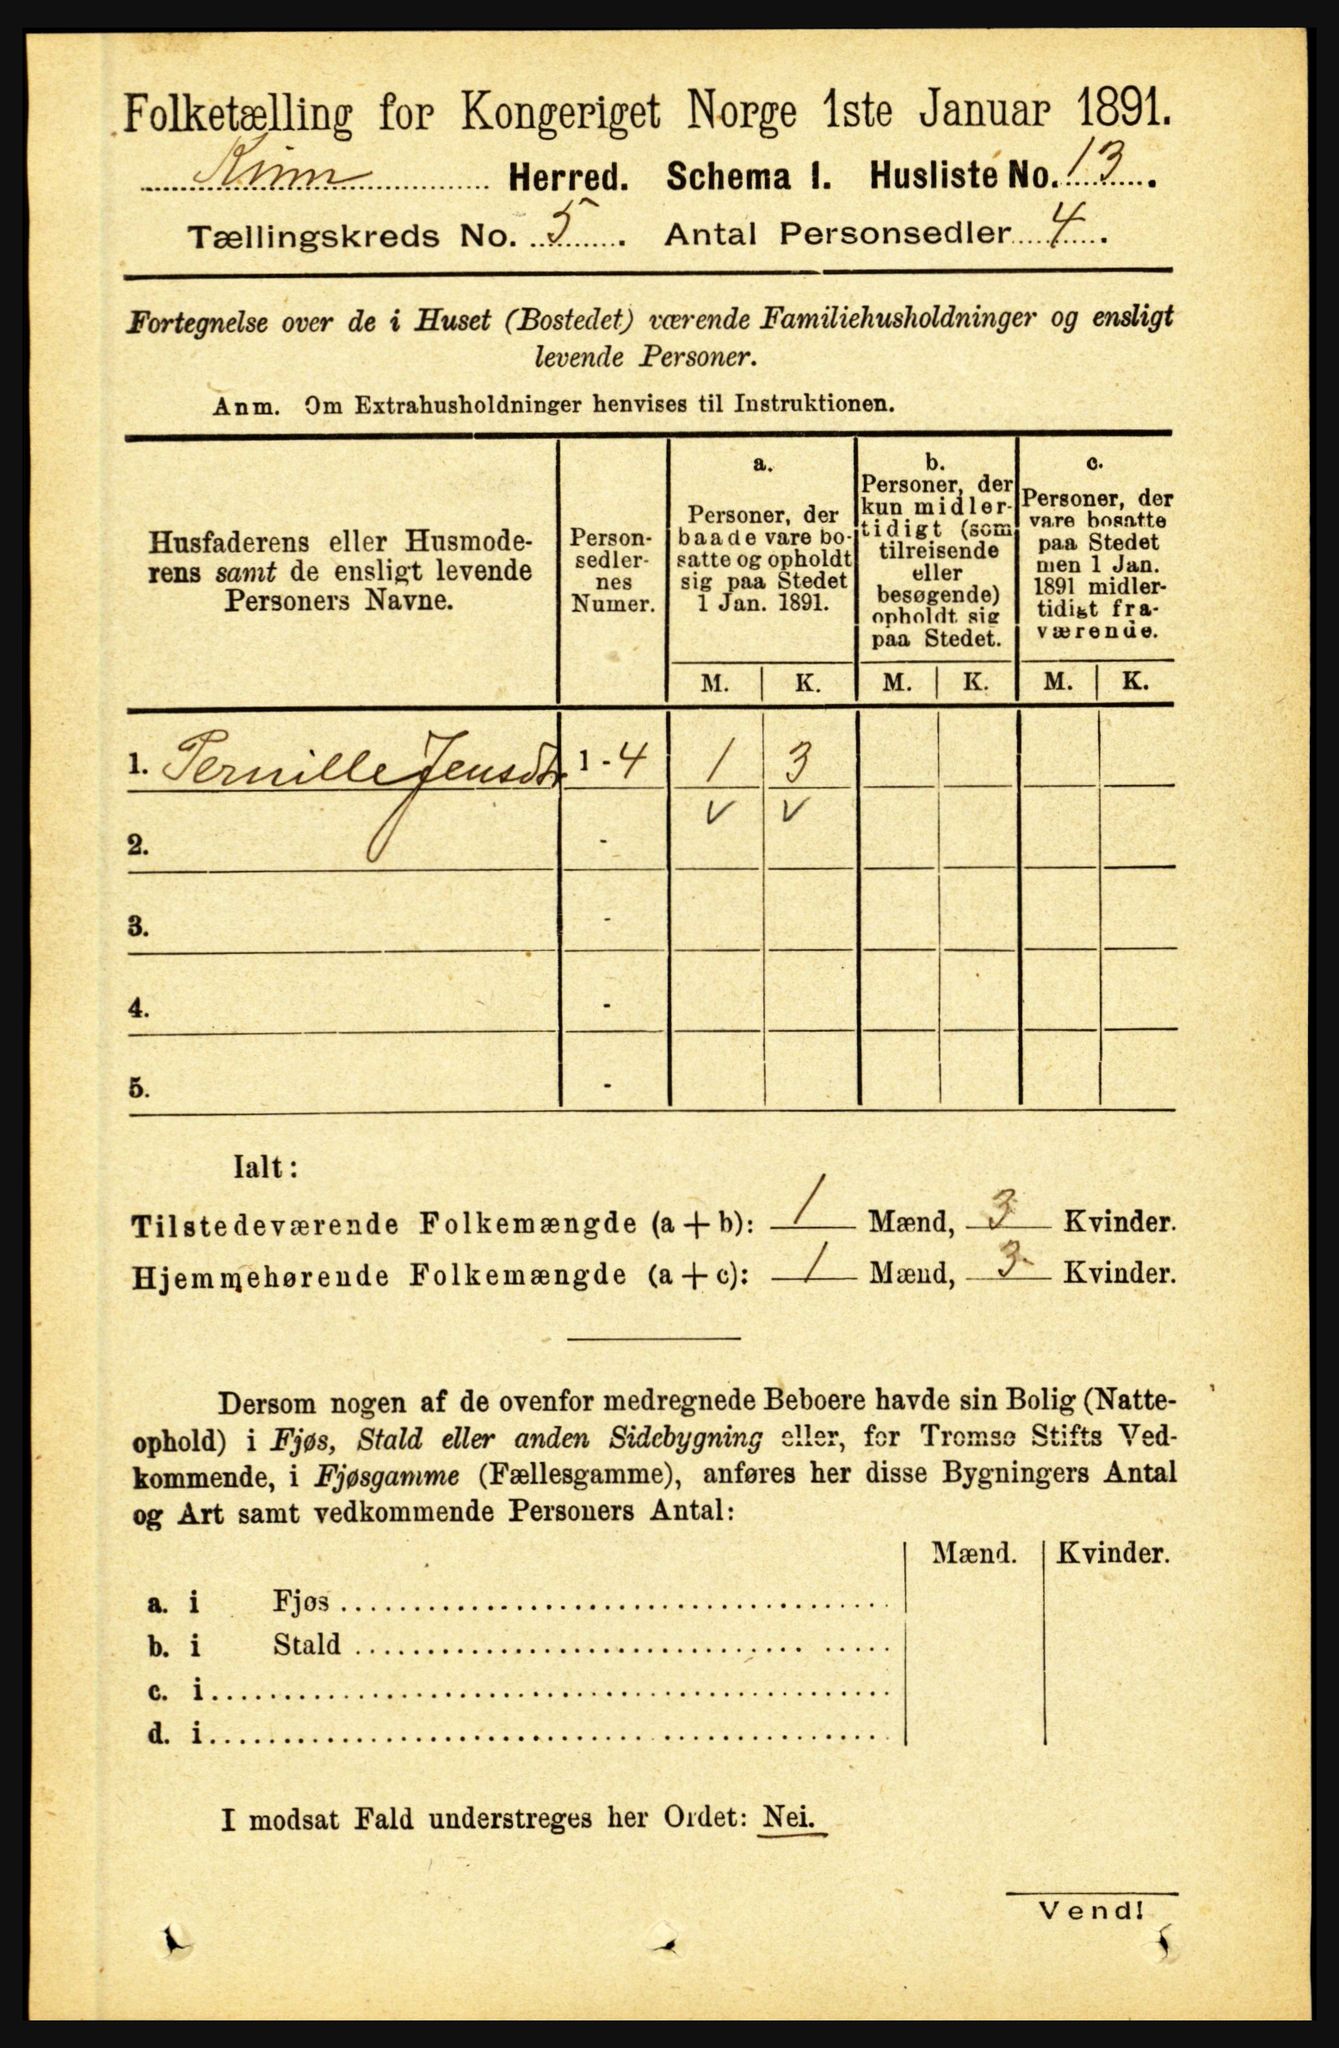 Folketælling for Kongeriget Norge 1ste Januar 1891.
Kinn Herred. Schema 1. Husliste No. 13.
Tællingskreds No. 5. Antal Personsedler 4.
Fortegnelse over de i Huset (Bostedet) værende Familiehusholdninger og ensligt
levende Personer.
Anm. Om Extrahusholdninger henvises til Instruktionen.
Husfaderens eller Husmode-
rens samt de ensligt levende
Personers Navne.
Person-
sedler-
nes
Numer.
a.
Personer, der
baade vare bo-
satte og opholdt
sig paa Stedet
1 Jan. 1891.
b.
Personer, der
kun midler-
tidigt (som
tilreisende
eller
besøgende)
opholdt sig
paa Stedet.
c.
Personer, der
vare bosatte
paa Stedet
men 1 Jan.
1891 midler-
tidigt fra-
værende.
M. K. M. K. M. K.
1. Pernille Jensdtr 1-4 1 3
v v
2. -
3. -
4. -
5. -
Ialt:
Tilstedeværende Folkemængde (a + b): 1 Mænd, 3 Kvinder.
Hjemmehørende Folkemængde (a + c): 1 Mænd, 3 Kvinder.
Dersom nogen af de ovenfor medregnede Beboere havde sin Bolig (Natte-
ophold) i Fjøs, Stald eller anden Sidebygning eller, for Tromsø Stifts Ved-
kommende, i Fjøsgamme (Fællesgamme), anføres her disse Bygningers Antal
og Art samt vedkommende Personers Antal:
Mænd. Kvinder.
a. i Fjøs
b. i Stald
c. i
d. i
I modsat Fald understreges her Ordet: Nei.
Vend!